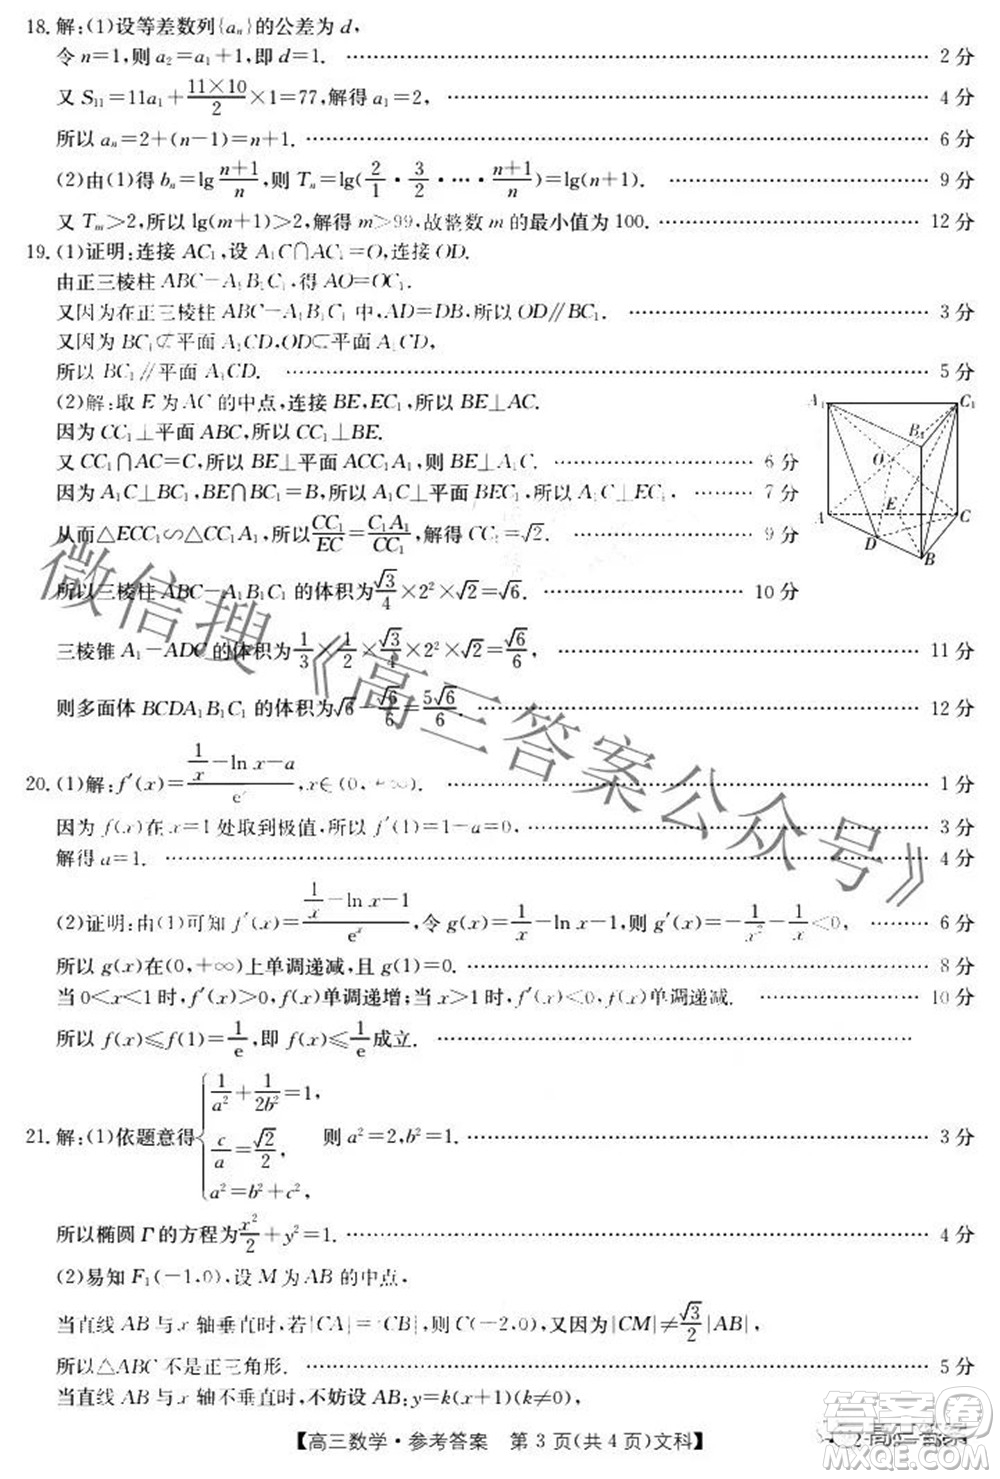 18. 解:(1)设等差数列{aₙ}的公差为 d,
令 n=1,则 a₂=a₁+1,即 d=1. 2 分
又 S₁₁=11a₁+\frac{11×10}{2}×1=77,解得 a₁=2, 4 分
所以 aₙ=2+(n−1)=n+1. 6 分
(2)由(1)得 bₙ=lg\frac{n+1}{n},则 Tₙ=lg(\frac{2}{1}·\frac{3}{2}·…·\frac{n+1}{n})=lg(n+1). 9 分
又 Tₘ>2,所以 lg(m+1)>2,解得 m>99,故整数 m 的最小值为 100. 12 分
19. (1)证明:连接 AC₁,设 A₁C∩AC₁=O,连接 OD.
由正三棱柱 ABC−A₁B₁C₁,得 AO=OC₁.
又因为在正三棱柱 ABC−A₁B₁C₁ 中,AD=DB,所以 OD∥BC₁. 3 分
又因为 BC₁⊄平面 A₁CD,OD⊂平面 A₁CD,
所以 BC₁∥平面 A₁CD. 5 分
(2)解:取 E 为 AC 的中点,连接 BE,EC₁,所以 BE⊥AC.
因为 CC₁⊥平面 ABC,所以 CC₁⊥BE.
又 CC₁∩AC=C,所以 BE⊥平面 ACC₁A₁,则 BE⊥A₁C. 6 分
因为 A₁C⊥BC₁,BE∩BC₁=B,所以 A₁C⊥平面 BEC₁,所以 A₁C⊥EC₁, 7 分
从而△ECC₁∽△CC₁A₁,所以\frac{CC₁}{EC}=\frac{C₁A₁}{CC₁},解得 CC₁=√2. 9 分
所以三棱柱 ABC−A₁B₁C₁ 的体积为\frac{√3}{4}×2²×√2=√6. 10 分
三棱锥 A₁−ADC 的体积为\frac{1}{3}×\frac{1}{2}×\frac{√3}{4}×2²×√2=\frac{√6}{6}, 11 分
则多面体 BCDA₁B₁C₁ 的体积为√6−\frac{√6}{6}=\frac{5√6}{6}. 12 分
A₁ C₁ B₁ O A E C D B
20. (1)解:f′(x)=\frac{\frac{1}{x}−ln x−a}{eˣ},x∈(0,+∞). 1 分
因为 f(x)在 x=1 处取到极值,所以 f′(1)=1−a=0, 3 分
解得 a=1. 4 分
(2)证明:由(1)可知 f′(x)=\frac{\frac{1}{x}−ln x−1}{eˣ},令 g(x)=\frac{1}{x}−ln x−1,则 g′(x)=−\frac{1}{x²}−\frac{1}{x}<0, 6 分
所以 g(x)在(0,+∞)上单调递减,且 g(1)=0. 8 分
当 0<x<1 时,f′(x)>0,f(x)单调递增;当 x>1 时,f′(x)<0,f(x)单调递减. 10 分
所以 f(x)≤f(1)=\frac{1}{e},即 f(x)≤\frac{1}{e}成立.
21. 解:(1)依题意得{\frac{1}{a²}+\frac{1}{2b²}=1, \frac{c}{a}=\frac{√2}{2}, a²=b²+c², 则 a²=2,b²=1. 3 分
所以椭圆 Γ 的方程为\frac{x²}{2}+y²=1. 4 分
(2)易知 F₁(−1,0),设 M 为 AB 的中点,
当直线 AB 与 x 轴垂直时,若|CA|=|CB|,则 C(−2,0),又因为|CM|≠\frac{√3}{2}|AB|,
所以△ABC 不是正三角形. 5 分
当直线 AB 与 x 轴不垂直时,不妨设 AB:y=k(x+1)(k≠0),
【高三数学·参考答案 第 3 页(共 4 页)文科】
微信搜《高三答案公众号》